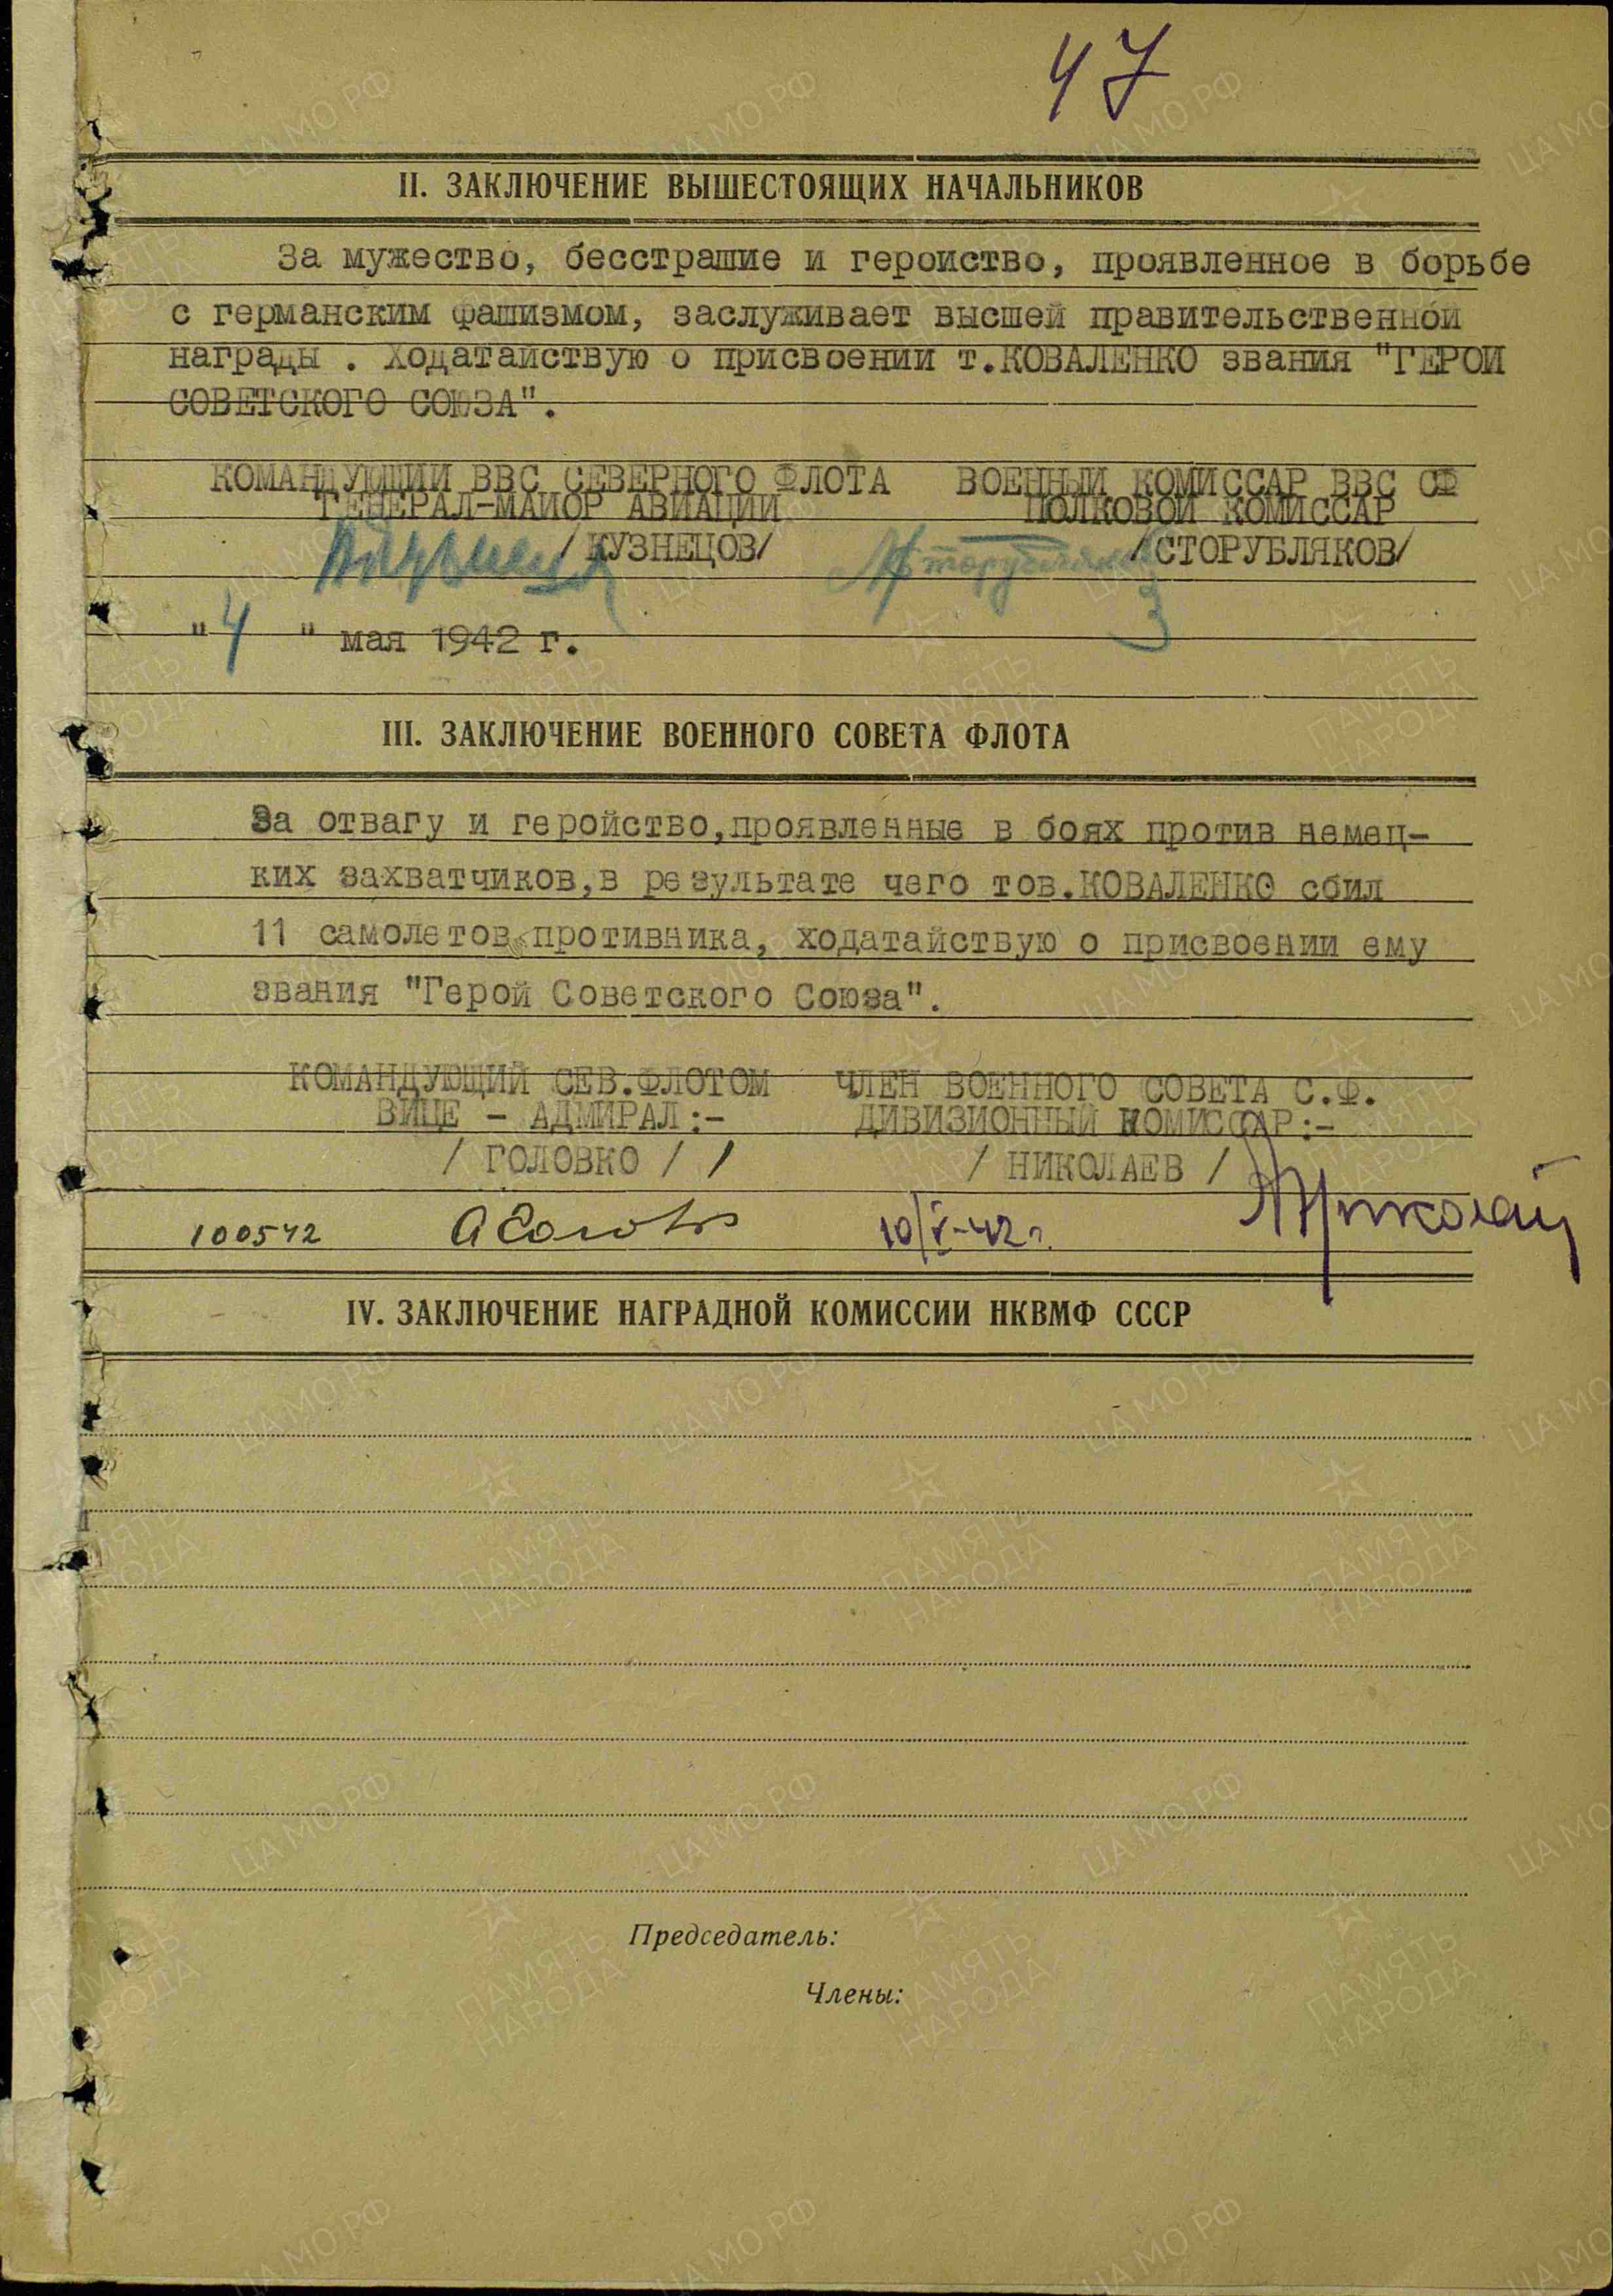 47
II. ЗАКЛЮЧЕНИЕ ВЫШЕСТОЯЩИХ НАЧАЛЬНИКОВ
За мужество, бесстрашие и героиство, проявленное в борьбе
с германским фашизмом, заслуживает высшей правительственной
награды . Ходатайствую о присвоении т.КОВАЛЕНКО звания "ГЕРОЙ
СОВЕТСКОГО СОЮЗА".
КОМАНДУЮЩИЙ ВВС СЕВЕРНОГО ФЛОТА ВОЕННЫЙ КОМИССАР ВВС СФ
ГЕНЕРАЛ-МАЙОР АВИАЦИИ ПОЛКОВОЙ КОМИССАР
/КУЗНЕЦОВ/ /СТОРУБЛЯКОВ/
"4 " мая 1942 г.
III. ЗАКЛЮЧЕНИЕ ВОЕННОГО СОВЕТА ФЛОТА
За отвагу и геройство,проявленные в боях против немец-
ких захватчиков,в результате чего тов.КОВАЛЕНКО сбил
11 самолетов противника, ходатайствую о присвоении ему
звания "Герой Советского Союза".
КОМАНДУЮЩИЙ СЕВ.ФЛОТОМ ЧЛЕН ВОЕННОГО СОВЕТА С.Ф.
ВИЦЕ - АДМИРАЛ:- ДИВИЗИОННЫЙ КОМИССАР:-
/ ГОЛОВКО / / НИКОЛАЕВ /
100542 АГоловко 10/V-42г. Николаев
IV. ЗАКЛЮЧЕНИЕ НАГРАДНОЙ КОМИССИИ НКВМФ СССР
Председатель:
Члены: